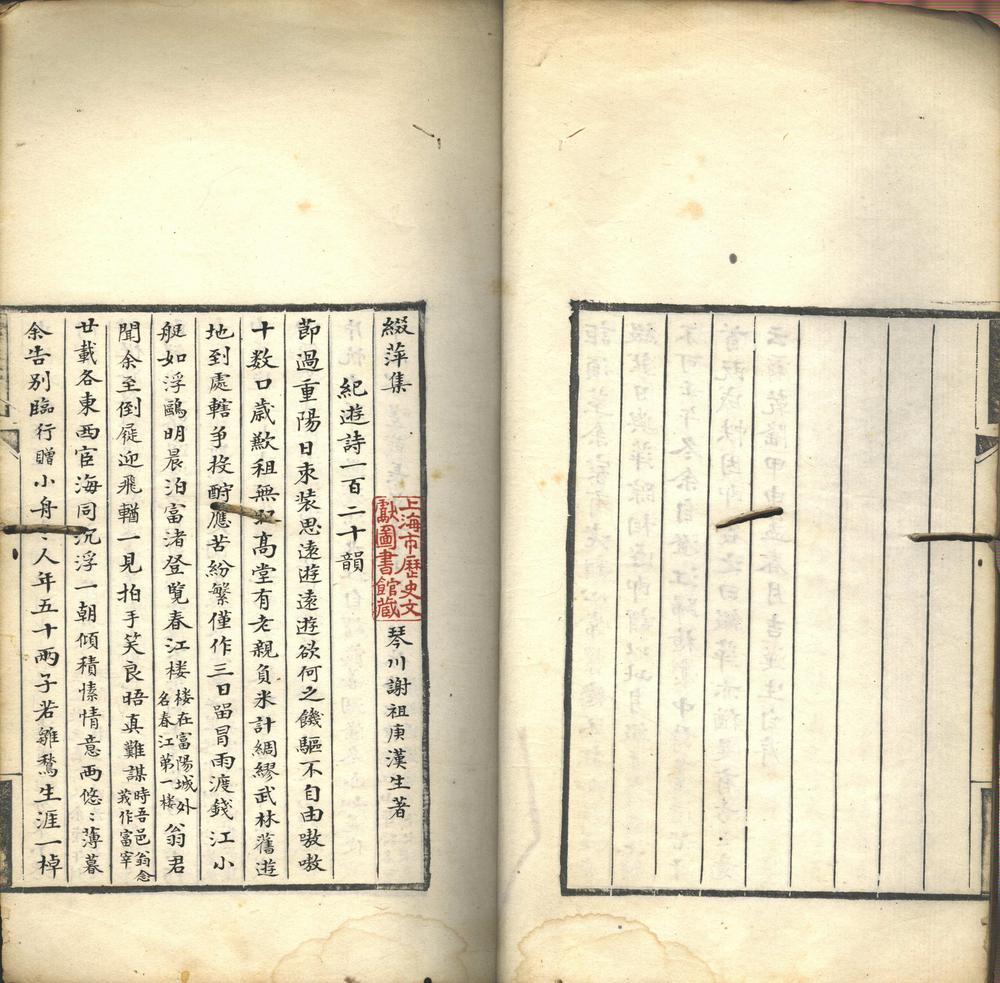 綴萍集
琴川謝祖庚漢生著
上海市歷史文
獻圖書館藏
紀遊詩一百二十韻
節過重陽日束裝思遠遊遠遊欲何之饑驅不自由嗷嗷
十数口歲歉租無高堂有老親負米計綢繆武林舊遊
地到處轄爭投酧應苦紛繁僅作三日畱冐雨渡錢江小
艇如浮鷗明晨泊富渚登覽春江楼楼在富陽城外名春江第一楼翁君
聞余至倒屣迎飛輶一見拍手笑良晤真難謀時吾邑翁念莪作富宰
廿載各東西宦海同沉浮一朝傾積愫情意两悠〻薄暮
余告别臨行贈小舟〻人年五十兩子若雛鶖生涯一棹